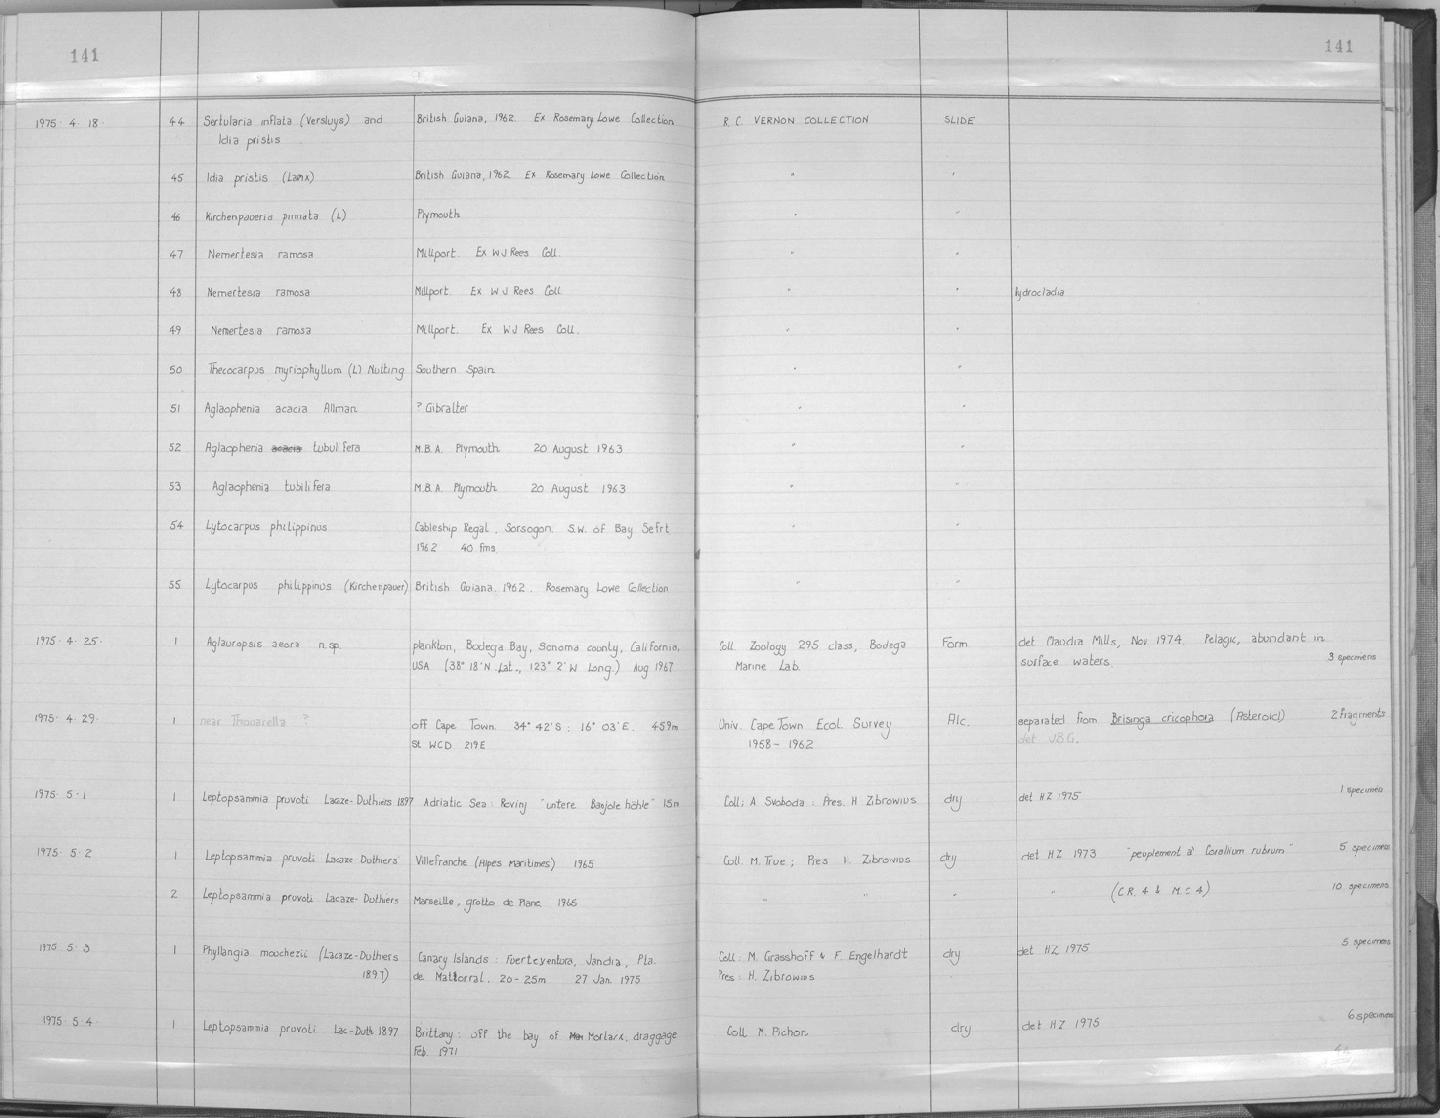 141 141
1975· 4· 18· 44 Sertularia inflata (Versluys) and British Guiana, 1962. Ex Rosemary Lowe Collection R. C. VERNON COLLECTION SLIDE
Idia pristis
45 Idia pristis (Lamx) British Guiana, 1962 Ex Rosemary Lowe Collection " "
46 Kirchenpaueria pinnata (L) Plymouth " "
47 Nemertesia ramosa Millport. Ex W J Rees Coll. " "
48 Nemertesia ramosa Millport. Ex W J Rees Coll " " hydrocladia
49 Nemertesia ramosa Millport. Ex W J Rees Coll. " "
50 Thecocarpus myriophyllum (L) Nutting Southern Spain " "
51 Aglaophenia acacia Allman ? Gibralter " "
52 Aglaophenia acacia tubulifera M.B.A. Plymouth 20 August 1963 " "
53 Aglaophenia tubilifera M.B.A. Plymouth 20 August 1963 " "
54 Lytocarpus philippinus Cableship Regal. Sorsogon. S.W. of Bay Sefrt " "
1962 40 fms
55 Lytocarpus philippinus (Kirchenpauer) British Guiana. 1962. Rosemary Lowe Collection " "
1975· 4· 25· 1 Aglauropsis aeora n.sp. plankton, Bodega Bay, Sonoma county, California, Coll. Zoology 295 class, Bodega Form det Claudia Mills, Nov 1974. Pelagic, abundant in
USA (38° 18'N Lat., 123° 2'W Long.) Aug 1967 Marine Lab. surface waters. 3 specimens
1975· 4· 29· 1 near Thouarella ? off Cape Town. 34° 42'S : 16° 03'E. 459m Univ. Cape Town Ecol. Survey Alc. separated from Brisinga cricophora (Asteroid) 2 fragments
St WCD 219E 1958 - 1962 det
1975· 5· 1 1 Leptopsammia pruvoti Lacaze-Duthiers 1897 Adriatic Sea: Rovinj "untere Banjole höhle" 15m Coll; A Svoboda : Pres. H Zibrowius dry det HZ 1975 1 specimen
1975· 5· 2 1 Leptopsammia pruvoti Lacaze Duthiers Villefranche (Alpes Maritimes) 1965 Coll. M. True; Pres H. Zibrowius dry det HZ 1973 "peuplement à Corallium rubrum" 5 specimens
2 Leptopsammia pruvoti Lacaze-Duthiers Marseille, grotto de 1965 " " " " (C.R. 4 & M.C 4) 10 specimens
1975 5· 3 1 Phyllangia mouchezii (Lacaze-Duthers Canary Islands : Fuerteventura, Jandia, Pta. Coll: M. Grasshoff & F. Engelhardt dry det HZ 1975 5 specimens
1897) de Mattorral. 20-25m 27 Jan. 1975 Pres: H. Zibrowius
1975· 5· 4· 1 Leptopsammia pruvoti Lac-Duth 1897 Brittany: off the bay of Morlaix, draggage Coll M. Pichon dry det HZ 1975 6 specimens
Feb. 1971